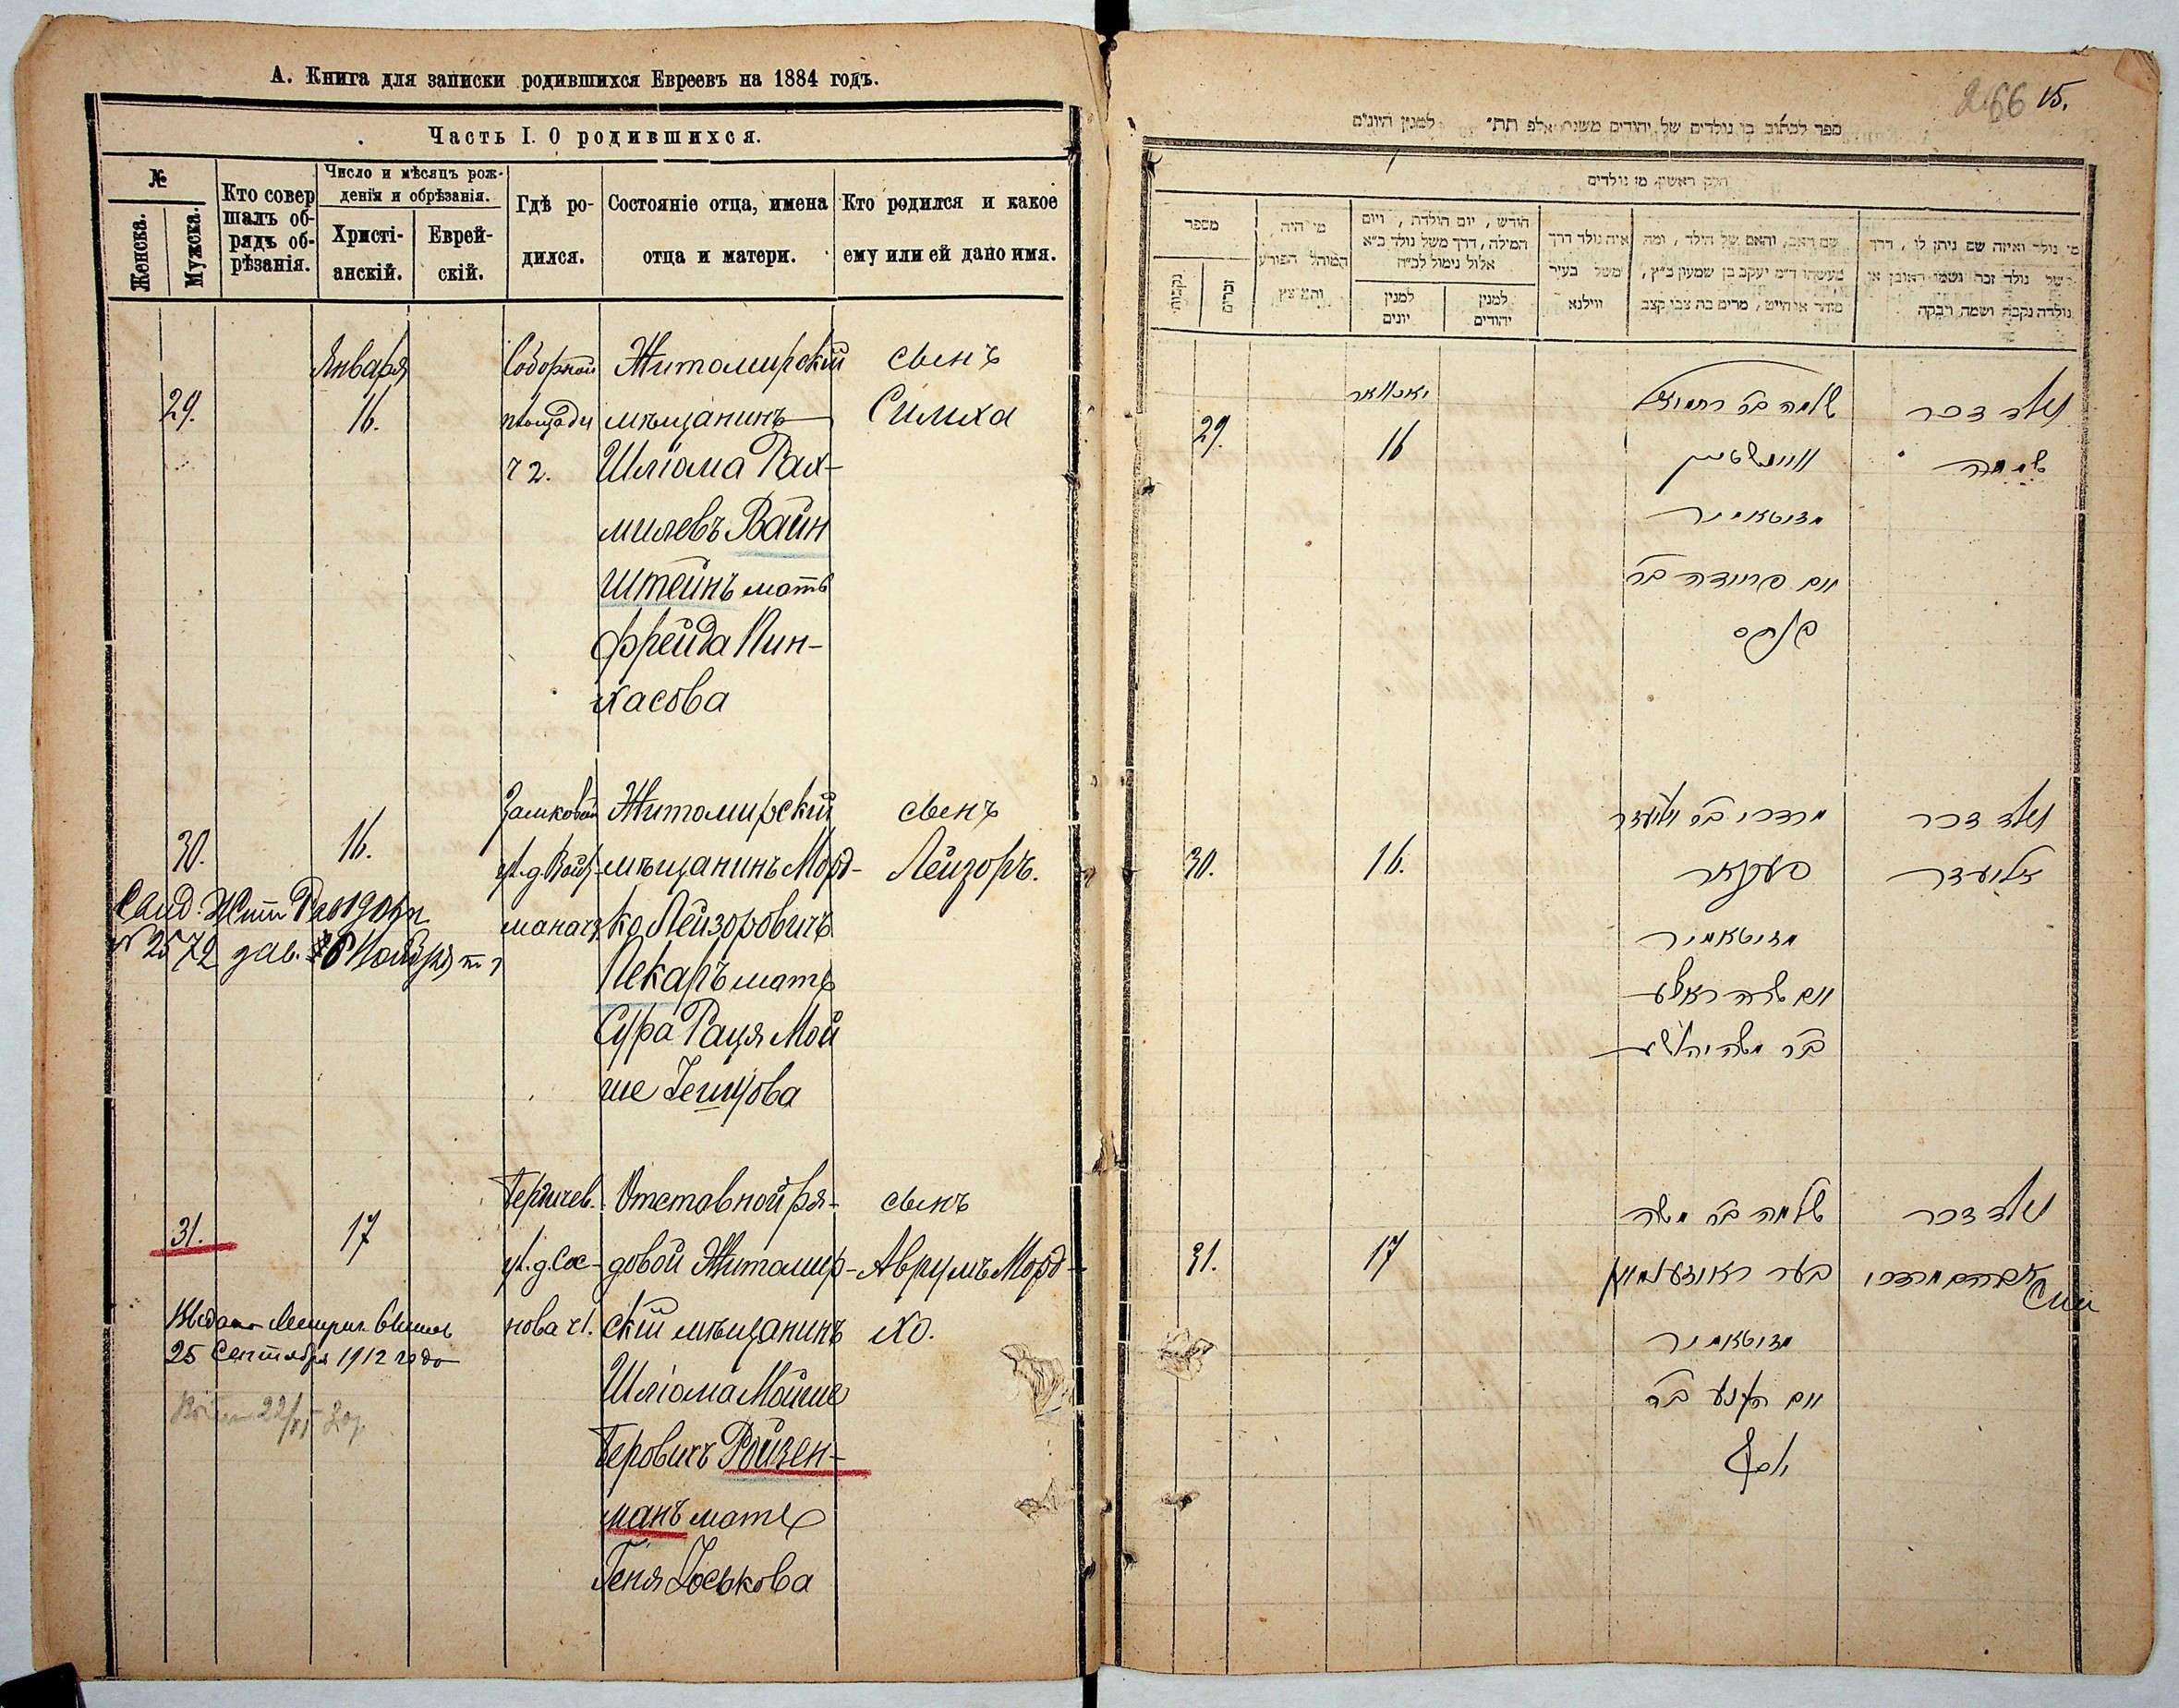 А. Книга для записки родившихся Евреевъ на 1884 годъ.
Часть I. О родившихся.
№
Женска.
Мужска.
Кто совер
шалъ об-
рядъ об-
рѣзанія.
Число и мѣсяцъ рож-
денія и обрѣзанія.
Христі-
анскій.
Еврей-
скій.
Гдѣ ро-
дился.
Состояніе отца, имена
отца и матери.
Кто родился и какое
ему или ей дано имя.
29.
Января
16.
Соборной
площади
ч 2.
Житомирскій
мѣщанинъ
Шліома Рах-
милевъ Вайн
штейнъ мать
Фрейда Пин-
хасова
сынъ
Симха
30.
16.
Замковой
ул. д. Войц-
Житомирскій
мѣщанинъ Морд-
ко Лейзоровичъ
Пекаръ мать
Сура Рація Мой
ше
сынъ
Лейзоръ.
№ 2572
31.
17
Бердичев.
ул. д. Сос-
нова ч 1.
Отставной ря-
довой Житомир-
скій мѣщанинъ
Шліома Мойше
Беровичъ Ройзен-
манъ мать
Геня Іоськова
сынъ
Аврумъ Морд-
хо.
25 Сентября 1912 года
266 15.
ספר לכתוב בו נולדים של יהודים משנת אלפ תת״ למנין היונים
חלק ראשון, מן נולדים
מספר
נקבות
זכרים
מי היה
המוהל הפורע
והמוצץ
חודש, יום הולדת, ויום
המילה, דרך משל נולד כ״א
אלול נימול לכ״ח
למנין
יונים
למנין
יהודים
איה נולד דרך
משל בעיר
ווילנא
שם האב, והאם של הילד, ומה
מעשהו ד״מ יעקב בן שמעון כ״ץ,
סוחר או חייט, מרים בת צבי קצב
מי נולד ואיזה שם ניתן לו, דרך
משל נולד זכר ושמו ראובן או
נולדה נקבה ושמה רבקה
29.
יאנואר
16
שלמה בר רחמיאל
וויינשטיין
מזיטאמיר
ואם פריידה בר
פנחס
נולד זכר
שמחה
30.
16.
מרדכי בר אליעזר
פעקאר
מזיטאמיר
ואם שרה ראצע
נולד זכר
אליעזר
31.
17
שלמה בר משה
בער ראוזענמאן
מזיטאמיר
ואם העניע בר
יוסף
נולד זכר
אברהם מרדכי